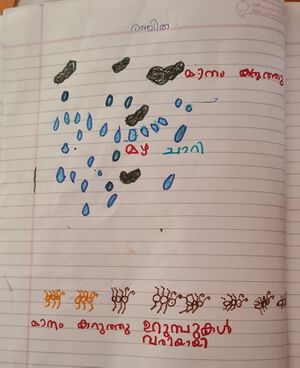 രഞ്ചിത
മാനം കറുത്തു
മഴ ചാറി
മാനം കറുത്തു ഉറുമ്പുകൾ
വരിയായി